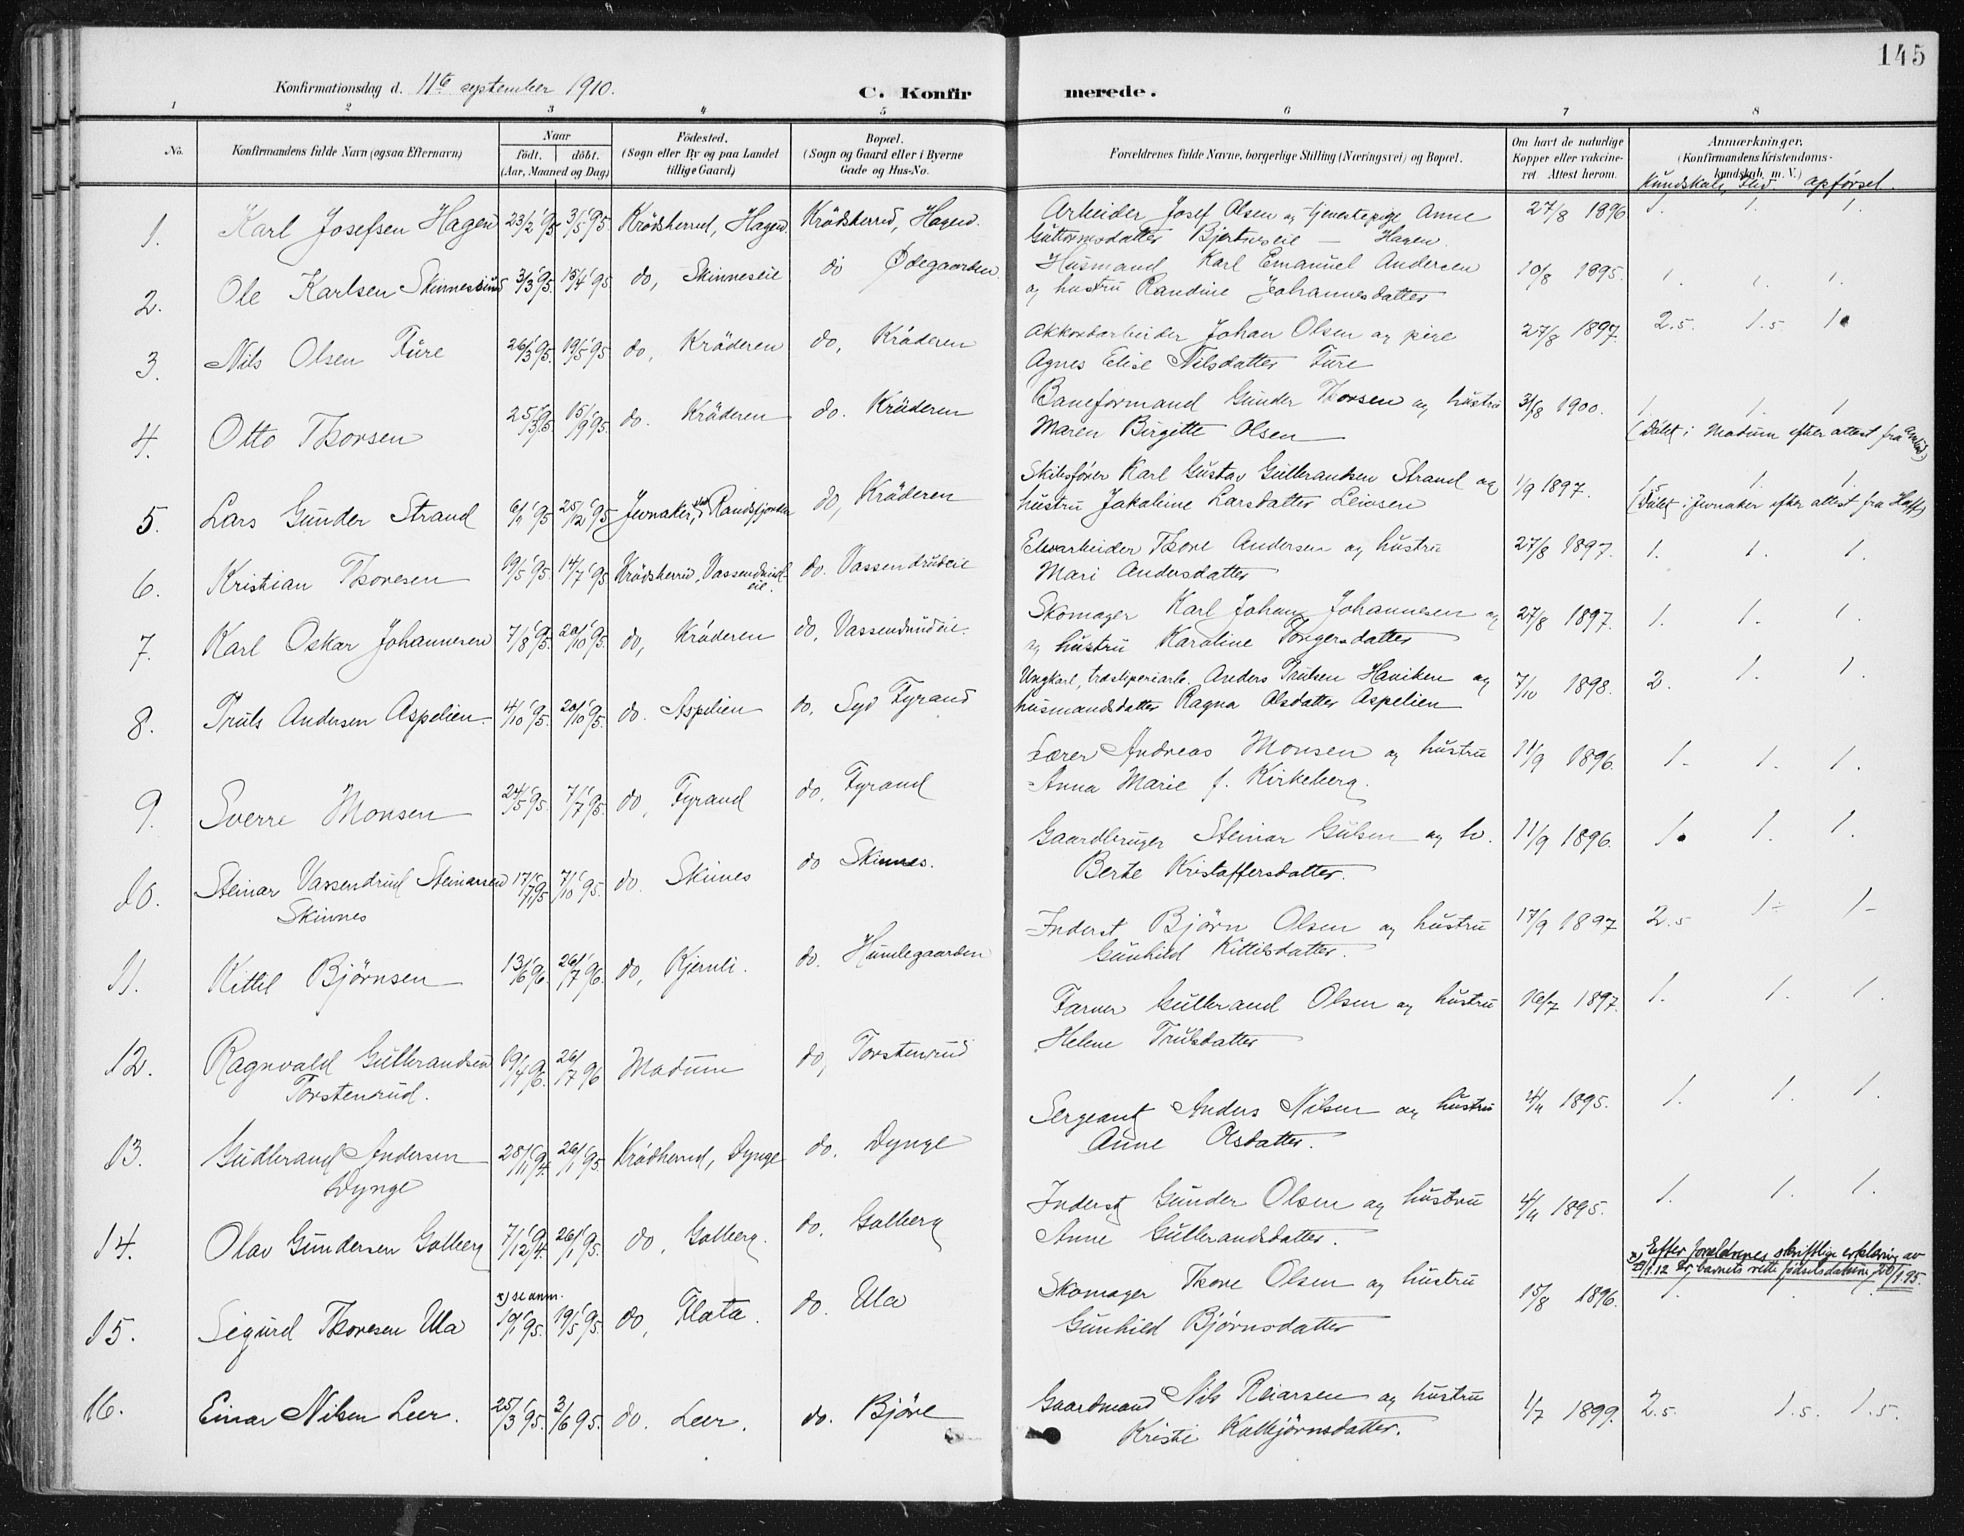 145
Konfirmationsdag d. 11te september 1910. C. Konfirmerede.
1 2 3 4 5 6 7 8
No. Konfirmandens fulde Navn (ogsaa Efternavn) Naar født. døbt. (Aar, Maaned og Dag) Fødested. (Sogn eller By og paa Landet tillige Gaard) Bopæl. (Sogn og Gaard eller i Byerne Gade og Hus-No. Forældrenes fulde Navne, borgerlige Stilling (Næringsvei) og Bopæl. Om havt de naturlige Kopper eller vakcineret. Attest herom. Anmærkninger. (Konfirmandens Kristendomskundskab m. V.)
Kundskab, Flid opførsel.
1. Karl Josefsen Hagen 23/2 '95 3/5 '95 Krødsherred, Hagen. Krødsherred, Hagen. Arbeider Josef Olsen og tjenestepige Anne 27/8 1896 1. 1. 1.
Guttormsdatter Bjertnæseie — Hagen.
2. Ole Karlsen Skinneseie 3/3 '95. 15/4 '95 do, Skinneseie do Ødegaarden Husmand Karl Emanuel Andersen 10/8 1895. 1. 1. 1.
og hustru Randine Johannesdatter
3. Nils Olsen Fure 26/3 '95. 19/5 '95 do, Krøderen do, Krøderen Akkordarbeider Johan Olsen og pike 27/8 1897. 2.5. 1.5 1.
Agnes Elise Nilsdatter Fure
4. Otto Thorsen 25/3 '95. 15/9 '95. do. Krøderen do. Krøderen Baneformand Gunder Thorsen og hustru 31/8 1900. 1. 1. 1
Maren Birgitte Olsen (Døbt i Modum efter attest fra
5. Lars Gunder Strand 25/12 '95 Jevnaker, Randsfjorden do, Krøderen Skibsfører Karl Gustav Gulbrandsen Strand og 1/9 1897. 1.5 1. 1.
hustru Jakobine Larsdatter (Døbt i Jevnaker efter attest fra
6. Kristian Thoresen 19/5 '95. 14/7 '95 Krødsherred, Vassendrudeie. do. Vassendrudeie Elvarbeider Thore Andersen og hustru 27/8 1897. 1. 1. 1.
Mari Andersdatter
7. Karl Oskar Johannesen 7/8 '95. 20/10 '95. do, Krøderen do, Vassendrudeie. Skomager Karl Johan Johannesen og 27/8 1897. 1. 1. 1.
og hustru Karoline Torgersdatter
8. Truls Andersen Aspelien 4/10 '95. 20/10 '95. do. Aspelien do, Syd Fyrand Ungkarl, træsliperiarb. Anders Trulsen Haviken og 7/10 1898. 2. 1. 1.
husmandsdatter Ragna Olsdatter Aspelien
9. Sverre Monsen 24/5 '95. 7/7 '95. do, Fyrand do, Fyrand Lærer Andreas Monsen og hustru 11/9 1896. 1. 1. 1.
Anna Marie f. Kirkeberg.
10. Steinar Vassendrud Steinarsen 17/7 '95 7/10 '95. do. Skinnes do Skinnes. Gaardbruger Steinar Gulsen og h. 11/9 1896. 1. 1. 1.
Skinnes Berte Kristoffersdatter.
11. Kittil Bjørnsen 13/6 '96. 26/7 '96. do, Kjernli. do. Humlegaarden Inderst Bjørn Olsen og hustru 17/9 1897 2.5 1- 1-
Gunhild Kittilsdatter.
12. Ragnvald Gulbrandsen 19/4 '96. 26/7 96 Modum do, Torstenrud Farver Gulbrand Olsen og hustru 16/7 1897. 1. 1. 1.
Torstenrud. Helene Trulsdatter
13. Gudbrand Andersen 28/11 '94. 26/1 '95 Krødsherred, Dynge do. Dynge Sergeant Anders Nilsen og hustru 1895. 1. 1. 1.
Dynge Anne Olsdatter.
14. Olav Gundersen Golberg 7/12 '94. 26/1 '95. do, Golberg. do. Golberg Inderst Gunder Olsen og hustru 1895. 1. 1. 1.
Anne Gulbrandsdatter.
x) Efter forældrenes skriftlige erklæring av 1.12 er barnets rette fødselsdatum 20/1.95.
x) se anm.
15. Sigurd Thoresen Ula 19/1 '95. 19/5 '95. do, Flata. do. Ula Skomager Thore Olsen og hustru 15/8 1896. 1. . .
Gunhild Bjørnsdatter
16. Einar Nilsen Leer. 25/3 '95. 3/6 95. do. Leer. do. Bjøre Gaardmand Nils Reiarsen og hustru 1/7 1899. 2.5. 1.5. 1.5.
Kristi Kolbjørnsdatter.